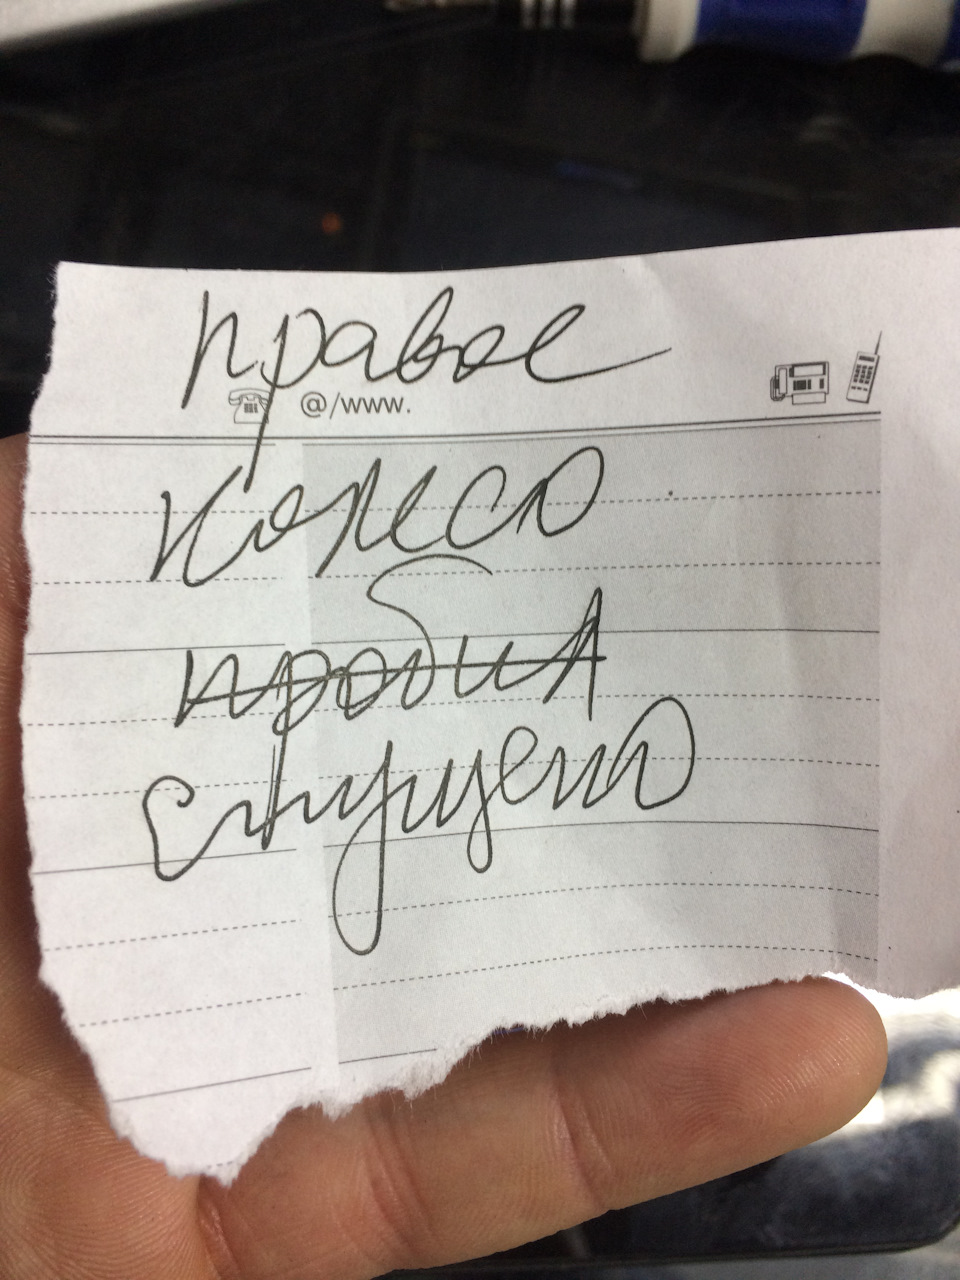 правое
@/www.
колесо
пробил
спущено